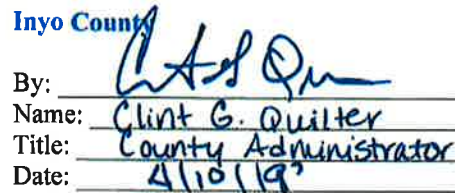 Inyo County
By:
Name: Clint G. Quilter
Title: County Administrator
Date: 4/10/19